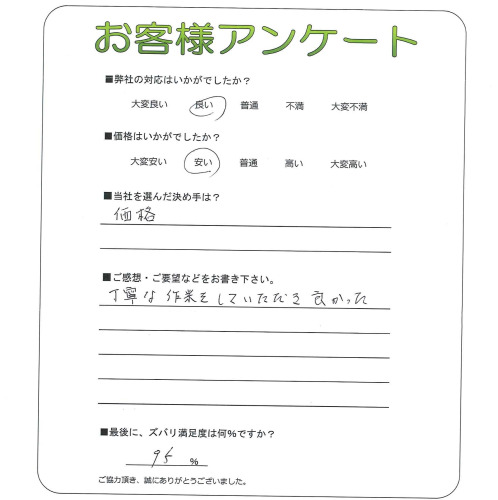 お客様アンケート
■弊社の対応はいかがでしたか？
大変良い 良い 普通 不満 大変不満
■価格はいかがでしたか？
大変安い 安い 普通 高い 大変高い
■当社を選んだ決め手は？
価格
■ご感想・ご要望などをお書き下さい。
丁寧な作業をしていただき良かった
■最後に、ズバリ満足度は何%ですか？
95 %
ご協力頂き、誠にありがとうございました。